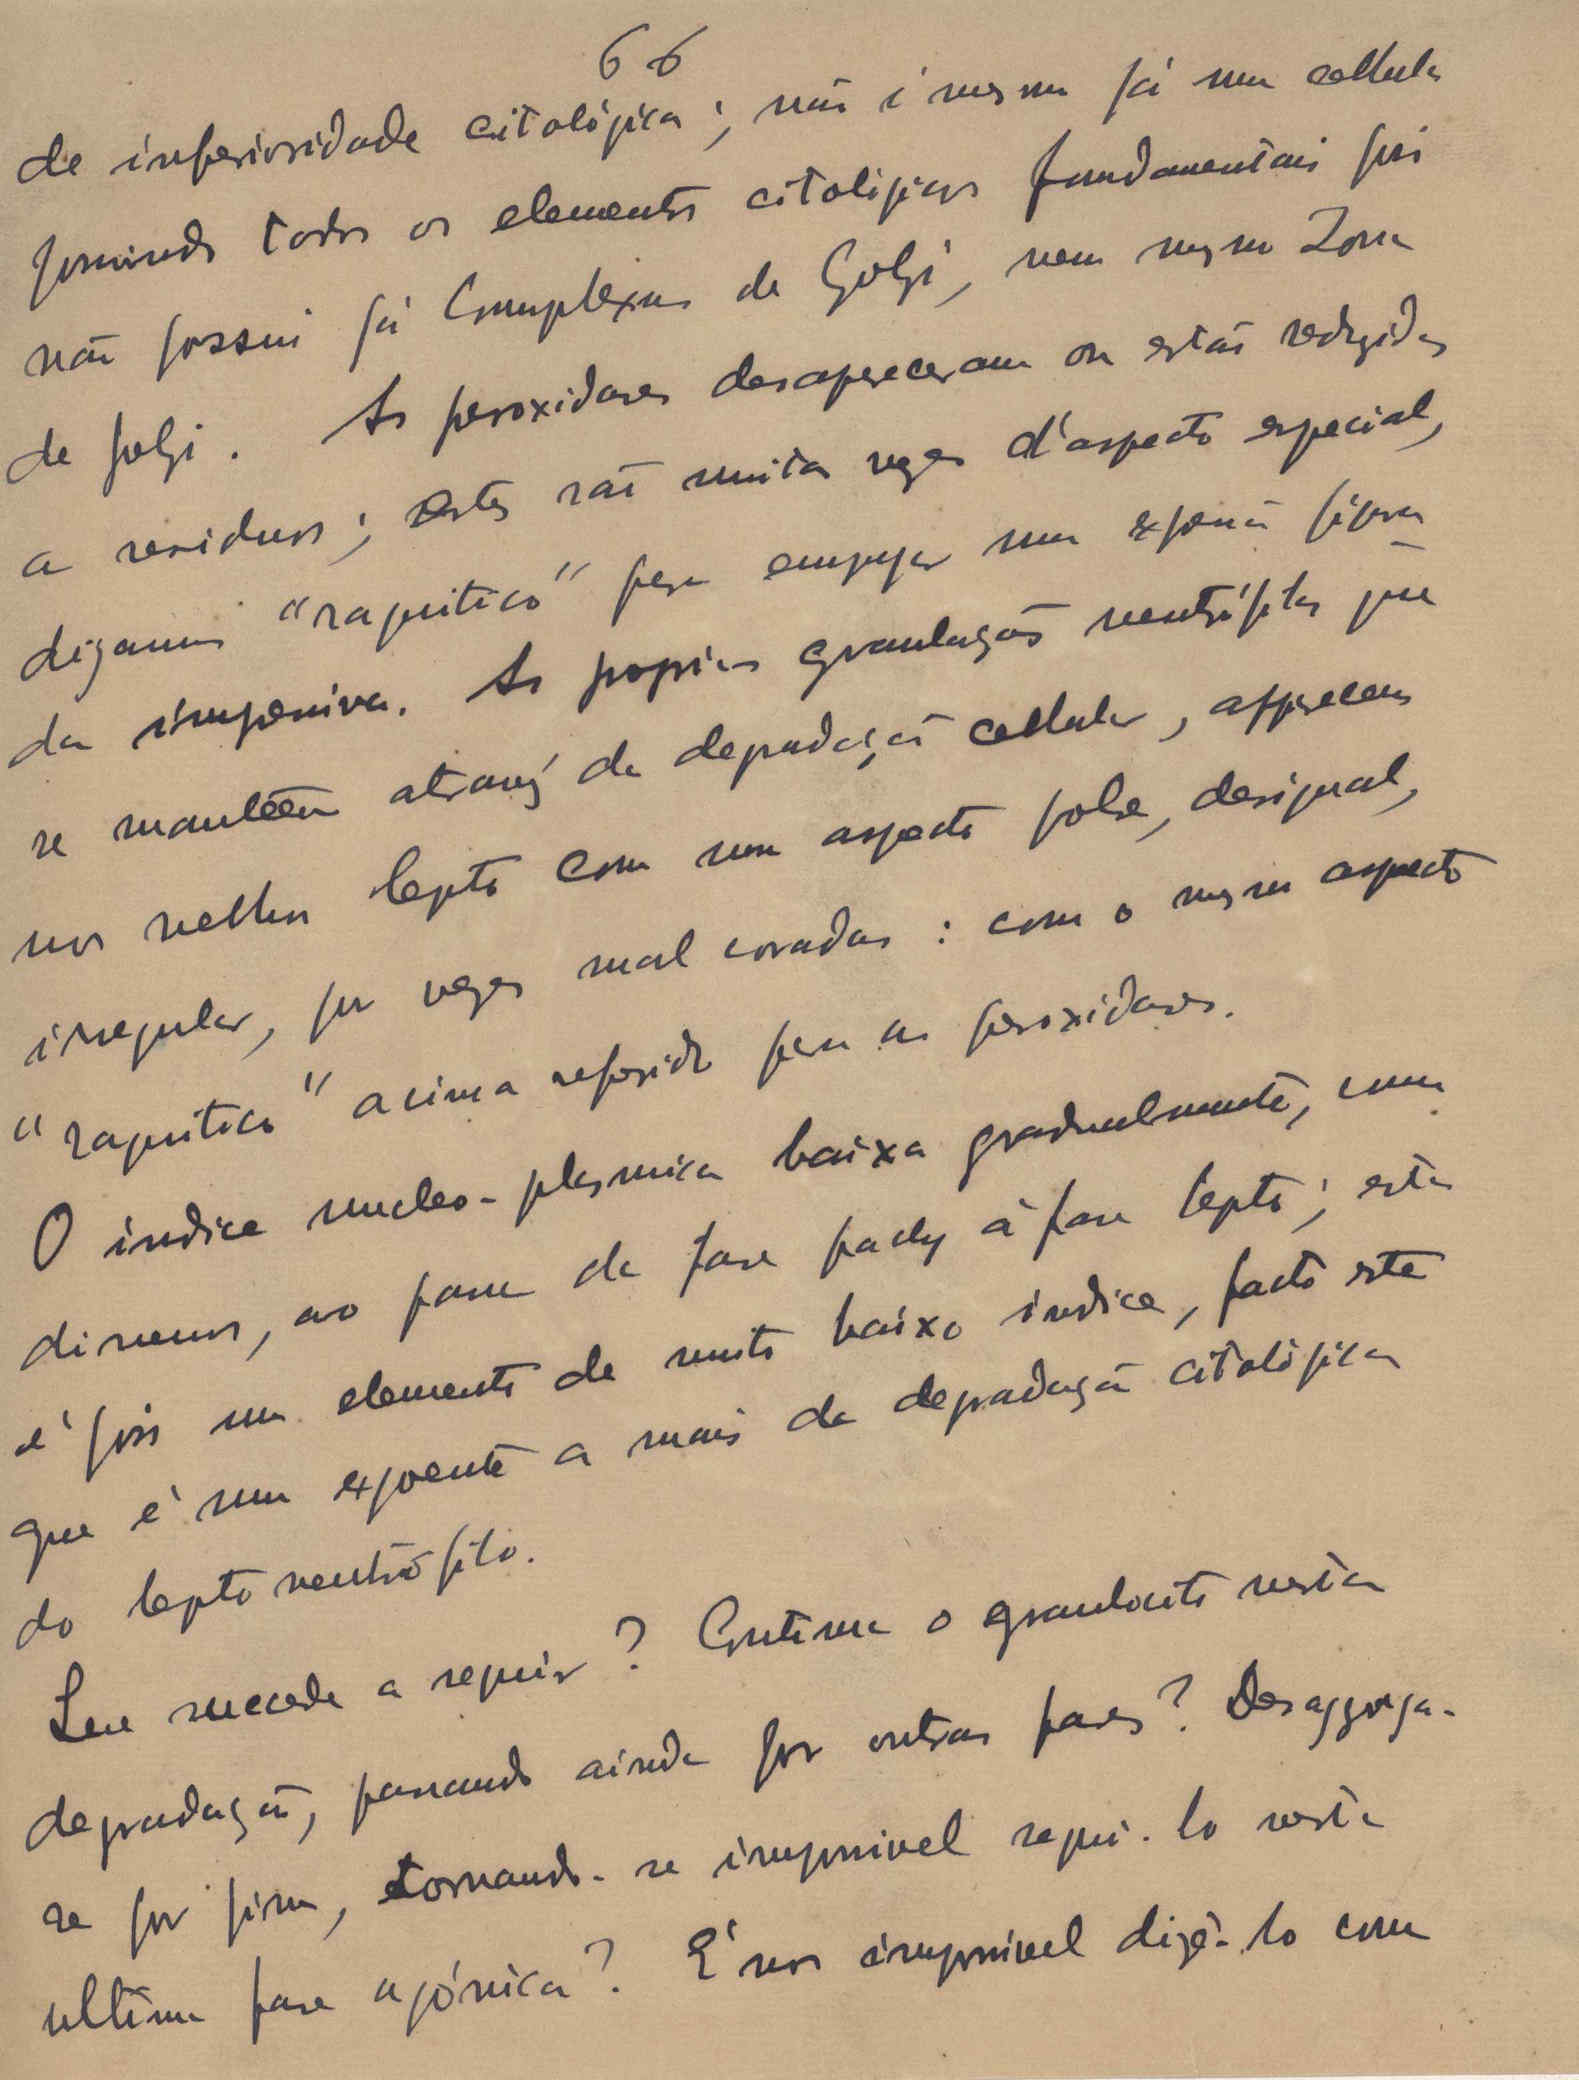 66
de inferioridade citológica; não é mesmo já uma cellula
possuindo todos os elementos citológicos fundamentais pois
não possui já Complexus de Golgi, nem mesmo Zona
de golgi. As peroxidases desapareceram ou estão reduzidas
a residuos; estes são muitas vezes d'aspecto especial,
digamos "raquitico" para empregar uma expressão
da impressiva. As proprias granulações neutrófilas que
se manteem atravez da degradação cellular, apparecem
nos velhos lepto com um aspecto pobre, desigual,
irregular, por vezes mal coradas: com o mesmo aspecto
"raquitico" acima referido para as peroxidases.
O indice nucleo-plasmico baixa gradualmente, como
dissemos, ao passar da fase pachy á fase lepto; esta
é pois um elemento de muito baixo indice, facto este
que é um expoente a mais da degradação citológica
do lepto neutrófilo.
Que succede a seguir? Continua o granulocito nesta
degradação, passando ainda por outras fases? Desaggrega-
se por fim, tornando-se impossivel segui-lo nesta
ultima fase agónica? É nos impossivel dizê-lo com